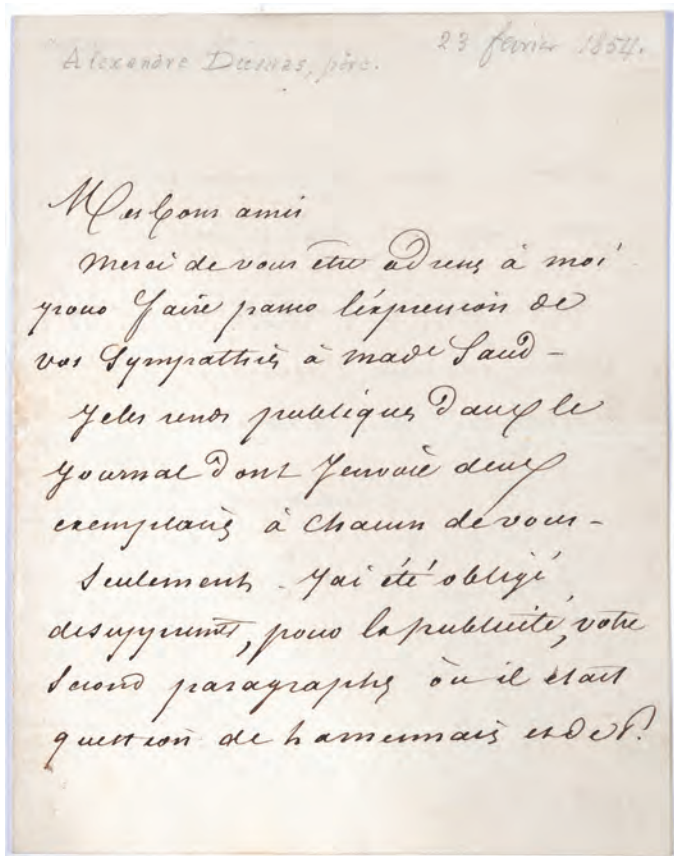 Alexandre Dumas, père.
23 février 1854.
Mes bons amis
Merci de vous être adressés à moi
pour faire passer l'expression de
vos sympathies à made Sand –
Je les rends publiques dans le
journal dont j'envoie deux
exemplaires à chacun de vous –
Seulement – j'ai été obligé
de supprimer, pour la publicité, votre
second paragraphe où il était
question de Lamennais et de P.